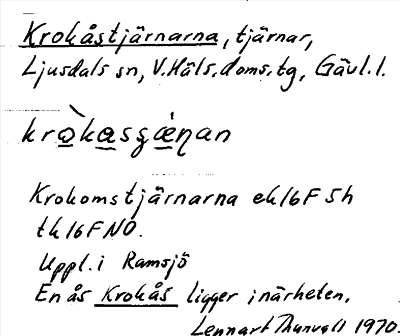 Krokåstjärnarna, tjärnar,
Ljusdals sn, V. Häls. doms. tg, Gävl. l.
kròkasʒǽŋan
Krokomstjärnarna ek 16F 5h
tk 16F NO.
Uppl. i Ramsjö
En ås Krokås ligger i närheten.
Lennart Thunvall 1970